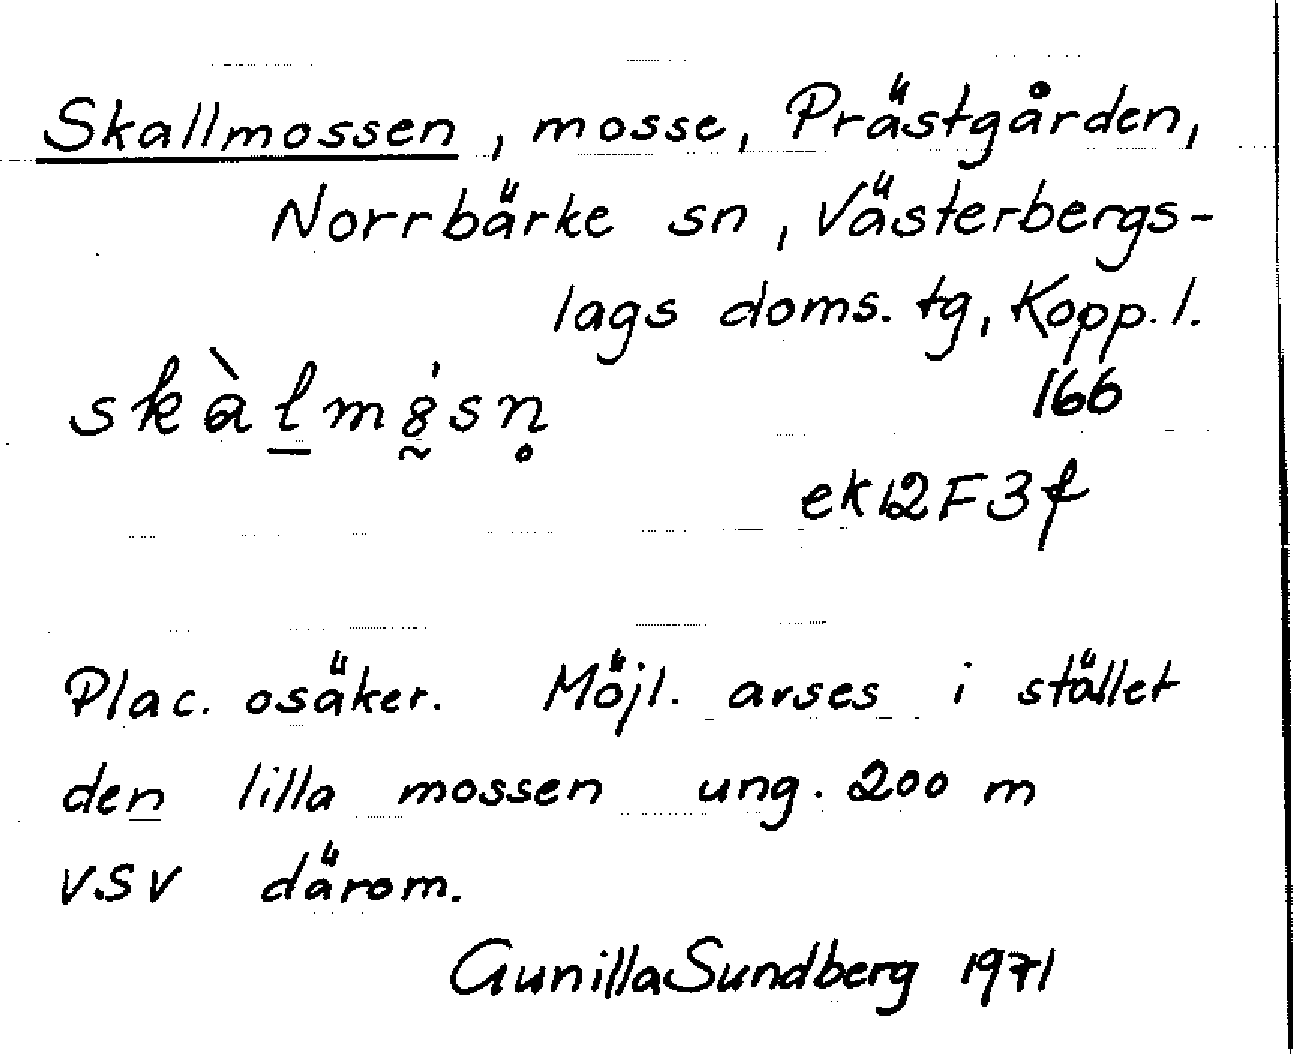 Skallmossen, mosse, Prästgården,
Norrbärke sn, Västerbergs-
lags doms. tg, Kopp. l.
166
ek12F3f
Plac. osäker. Möjl. avses i stället
den lilla mossen ung. 200 m
V.SV därom.
Gunilla Sundberg 1971